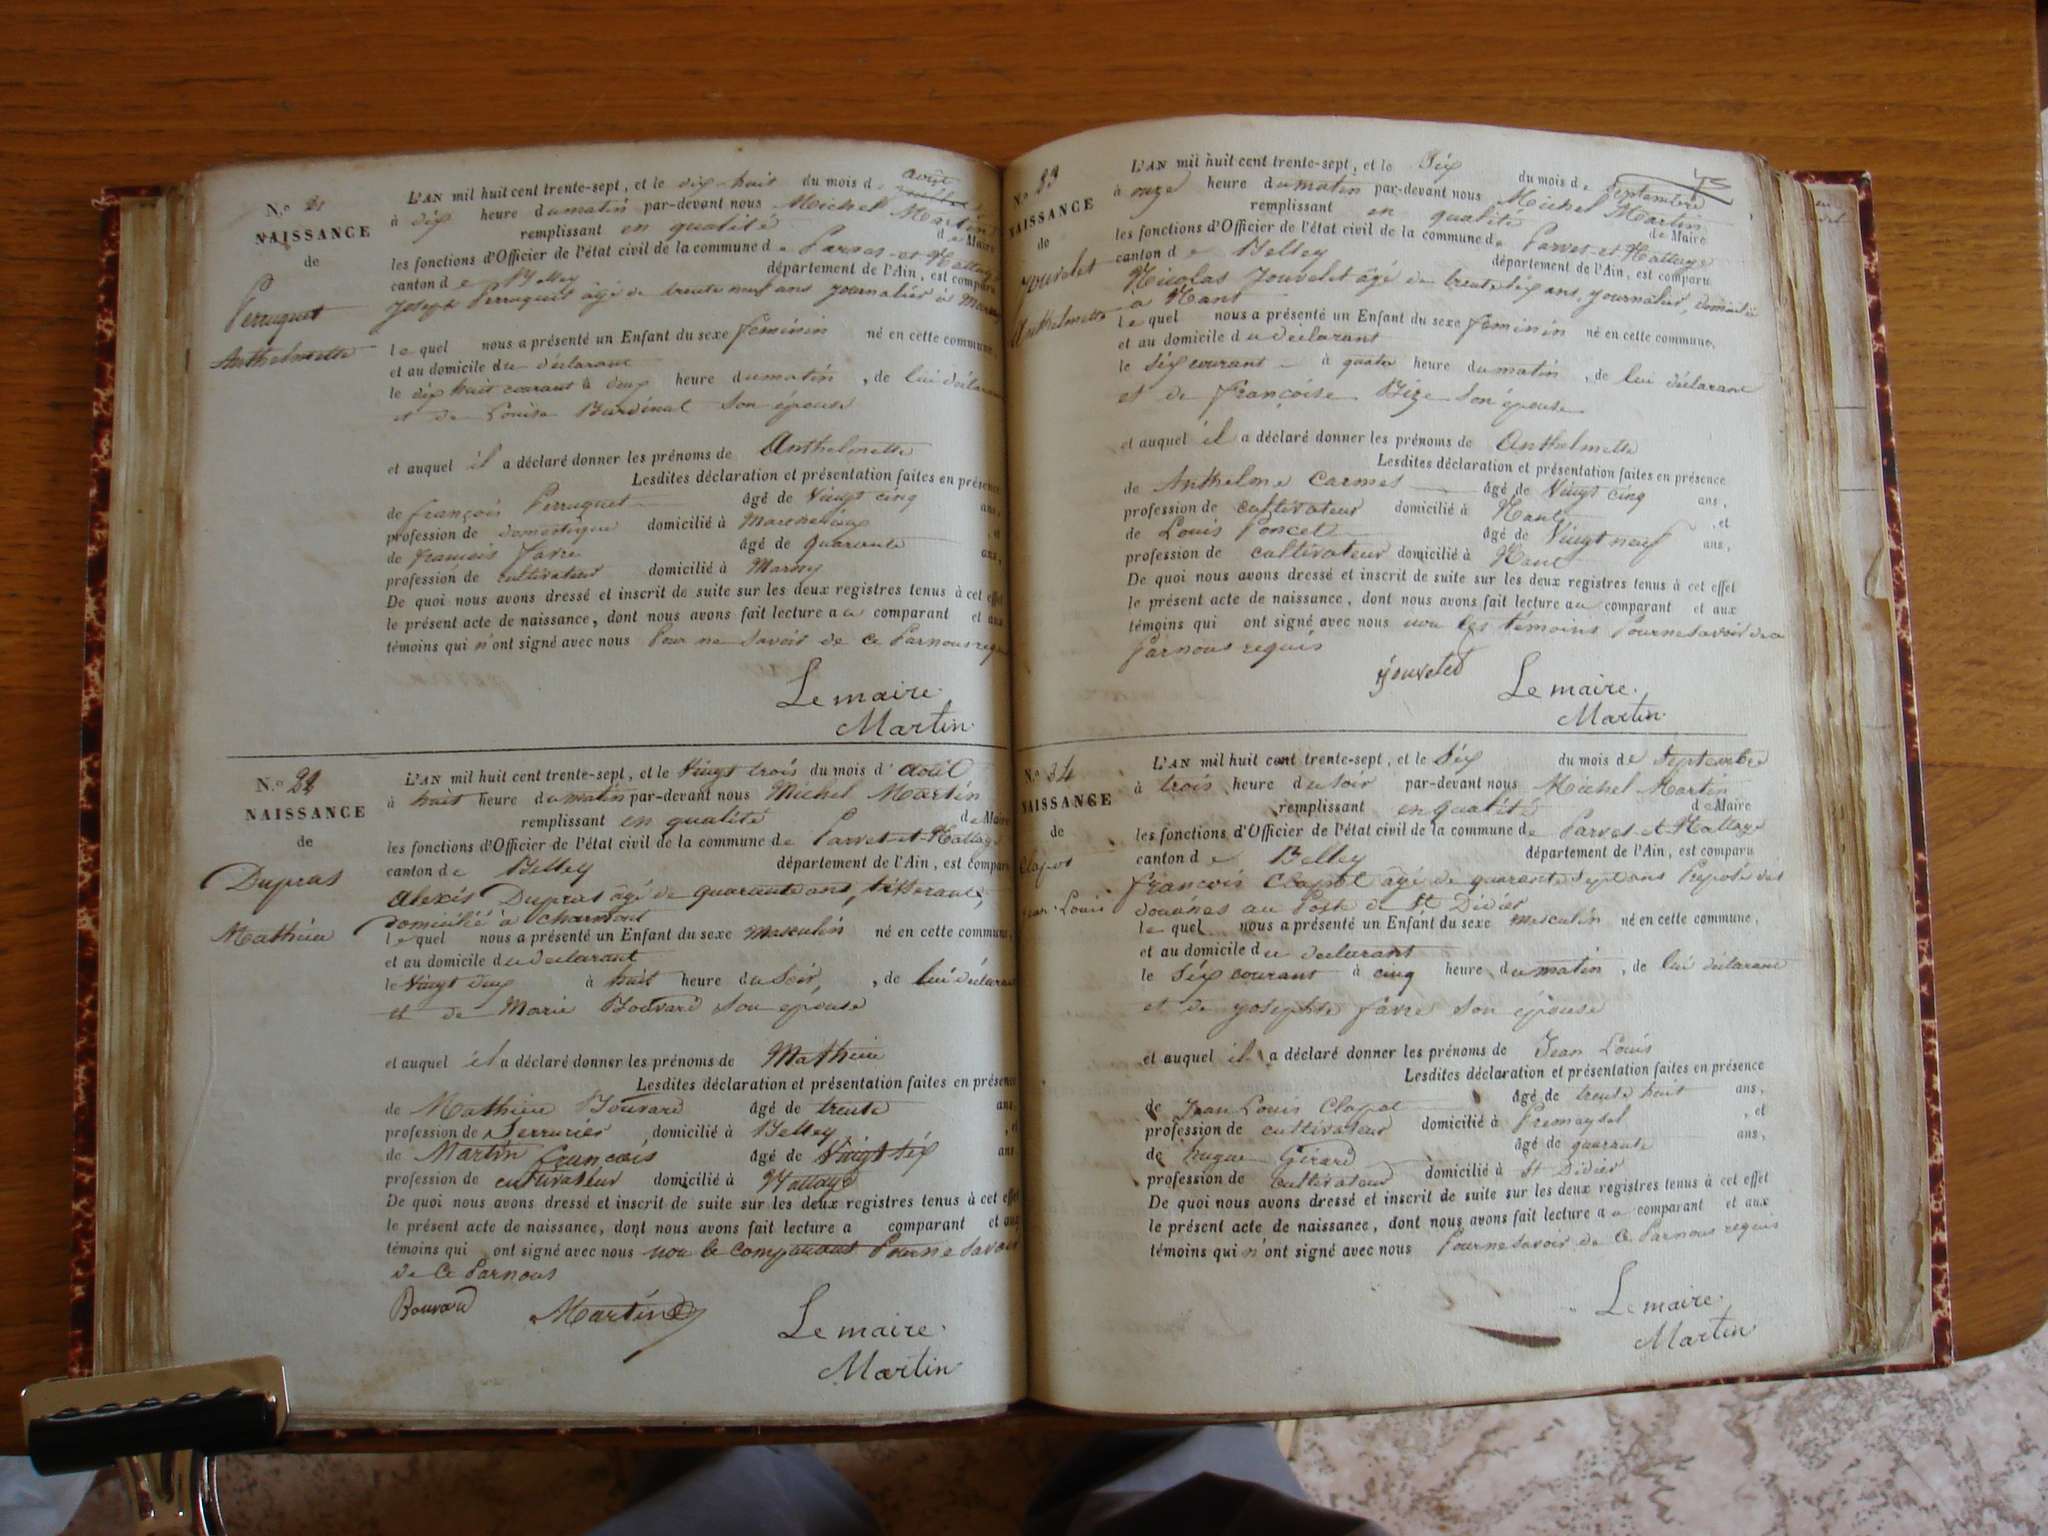 N.o 21
NAISSANCE
de
Perruquet
Anthelmette
L'AN mil huit cent trente-sept, et le dix-huit du mois d août
à dix heure du matin par-devant nous Michel Martin
remplissant en qualité de Maire
les fonctions d'Officier de l'état civil de la commune de Parves-et-Nattage
canton de Belley département de l'Ain, est comparu
Joseph Perruquet âgé de trente neuf ans journalier à
lequel nous a présenté un Enfant du sexe feminin né en cette commune,
et au domicile du déclarant
le dix huit courant à deux heure du matin, de lui déclarant
et de Louise Burdinat son épouse
et auquel il a déclaré donner les prénoms de Anthelmette
Lesdites déclaration et présentation faites en présence
de françois Perruquet âgé de Vingt cinq ans,
profession de domestique domicilié à , et
de francois favre âgé de quarante ans,
profession de cultivateur domicilié à
De quoi nous avons dressé et inscrit de suite sur les deux registres tenus à cet effet
le présent acte de naissance, dont nous avons fait lecture au comparant et aux
témoins qui n'ont signé avec nous Pour ne savoir de ce Parnous requis
Le maire
Martin
N.o 22
NAISSANCE
de
Dupras
Mathieu
L'AN mil huit cent trente-sept, et le Vingt trois du mois d'août
à huit heure du matin par-devant nous Michel Martin
remplissant en qualité de Maire
les fonctions d'Officier de l'état civil de la commune de Parves-et-Nattage
canton de Belley département de l'Ain, est comparu
alexis Dupras âgé de quarante ans, tisserand,
domicilié à charmont
lequel nous a présenté un Enfant du sexe masculin né en cette commune,
et au domicile du declarant
le Vingt deux à huit heure du soir, , de lui déclarant
et de Marie Bouvard son epouse
et auquel il a déclaré donner les prénoms de Mathieu
Lesdites déclaration et présentation faites en présence
de Mathieu Bouvard âgé de trente ans,
profession de Serrurier domicilié à Belley , et
de Martin francois âgé de Vingt six ans
profession de cultivateur domicilié à Nattage
De quoi nous avons dressé et inscrit de suite sur les deux registres tenus à cet effet
le présent acte de naissance, dont nous avons fait lecture a comparant et aux
témoins qui ont signé avec nous non le comparant Pour ne savoir
de ce Parnous
Bouvard Martin
Le maire
Martin
N.o 23
NAISSANCE
de
Jouvelet
Anthelmette
L'AN mil huit cent trente-sept, et le Six du mois de septembre
à onze heure du matin par-devant nous Michel Martin
remplissant en qualité de Maire
les fonctions d'Officier de l'état civil de la commune de Parves-et-Nattage
canton de Belley département de l'Ain, est comparu
Nicolas Jouvelet âgé de trente six ans, journalier, domicilié
a Nant
lequel nous a présenté un Enfant du sexe feminin né en cette commune,
et au domicile du déclarant
le six courant à quatre heure du matin, de lui déclarant
et de françoise Bize son épouse
et auquel il a déclaré donner les prénoms de Anthelmette
Lesdites déclaration et présentation faites en présence
de Anthelme Carmet âgé de Vingt cinq ans,
profession de cultivateur domicilié à Nant , et
de Louis Poncet âgé de Vingt neuf ans,
profession de cultivateur domicilié à Nant
De quoi nous avons dressé et inscrit de suite sur les deux registres tenus à cet effet
le présent acte de naissance, dont nous avons fait lecture au comparant et aux
témoins qui ont signé avec nous non les témoins Pour ne savoir de ce
Parnous requis
Le maire
Martin
N.o 24
NAISSANCE
de
Clapot
Jean-Louis
L'AN mil huit cent trente-sept, et le Six du mois de septembre
à trois heure du soir par-devant nous Michel Martin
remplissant en qualité de Maire
les fonctions d'Officier de l'état civil de la commune de Parves-et-Nattage
canton de Belley département de l'Ain, est comparu
francois Clapot âgé de quarante sept ans Préposé des
douanes au Poste de St Didier
lequel nous a présenté un Enfant du sexe masculin né en cette commune,
et au domicile du declarant
le six courant à cinq heure du matin, de lui déclarant
et de josephte favre son épouse
et auquel il a déclaré donner les prénoms de Jean Louis
Lesdites déclaration et présentation faites en présence
de Jean Louis Clapot âgé de trente huit ans,
profession de cultivateur domicilié à , et
de hugue Girard âgé de quarante ans,
profession de cultivateur domicilié à St Didier
De quoi nous avons dressé et inscrit de suite sur les deux registres tenus à cet effet
le présent acte de naissance, dont nous avons fait lecture au comparant et aux
témoins qui n'ont signé avec nous Pour ne savoir de ce Parnous requis
Le maire
Martin